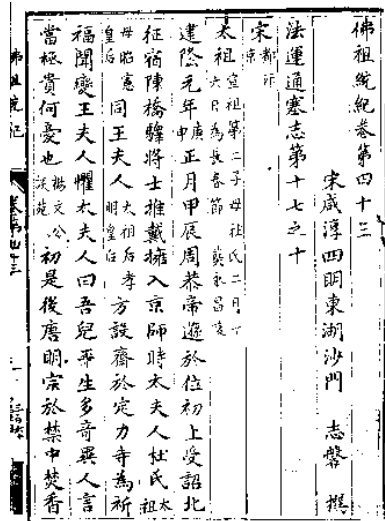 佛祖統紀卷第四十三
宋咸淳四明東湖沙門 志磐 撰
法運通塞志第十七之十
宋都汴京
太祖宣祖第二子母杜氏二月十六日為長春節葬永昌陵
建隆元年庚申正月甲辰周恭帝遜於位初上受詔北
征宿陳橋驛將士推戴擁入京師時太夫人杜氏太祖
母昭憲皇后同王夫人太祖后孝明皇后方設齋於定力寺為祈
福聞變王夫人懼太夫人曰吾兒平生多奇異人言
當極貴何憂也楊文公談苑初是後唐明宗於禁中焚香
佛祖統紀
卷第四十三
一